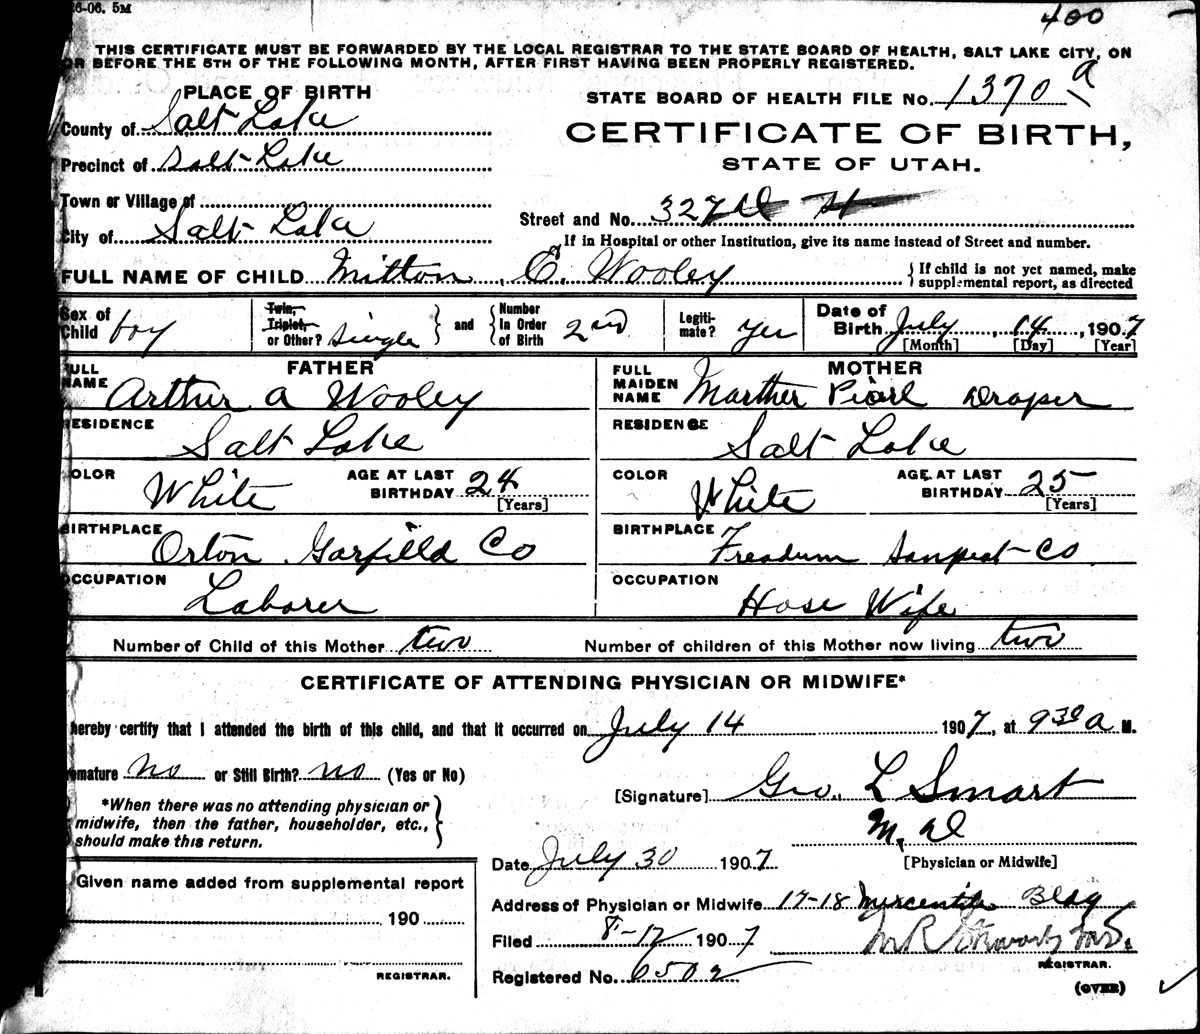 26-06. 5M
400
THIS CERTIFICATE MUST BE FORWARDED BY THE LOCAL REGISTRAR TO THE STATE BOARD OF HEALTH, SALT LAKE CITY, ON
OR BEFORE THE 5TH OF THE FOLLOWING MONTH, AFTER FIRST HAVING BEEN PROPERLY REGISTERED.
PLACE OF BIRTH
STATE BOARD OF HEALTH FILE No. 1370 a
County of Salt Lake
CERTIFICATE OF BIRTH,
Precinct of Salt Lake
STATE OF UTAH.
Town or Village of
Street and No. 327 D St
City of Salt Lake
If in Hospital or other Institution, give its name instead of Street and number.
FULL NAME OF CHILD Mitton, E. Wooley { If child is not yet named, make supplemental report, as directed
Sex of Child boy Twin, Triplet, or Other? Single and Number In Order of Birth 2nd Legitimate? Yes Date of Birth July, 14, 1907
[Month] [Day] [Year]
FATHER MOTHER
FULL NAME Arthur A Wooley FULL MAIDEN NAME Marther Pearl Draper
RESIDENCE Salt Lake RESIDENCE Salt Lake
COLOR White AGE AT LAST BIRTHDAY 24 [Years] COLOR White AGE AT LAST BIRTHDAY 25 [Years]
BIRTHPLACE Orton Garfield Co BIRTHPLACE Freadum Sanpeat-Co
OCCUPATION Laborer OCCUPATION Hose Wife
Number of Child of this Mother two Number of children of this Mother now living two
CERTIFICATE OF ATTENDING PHYSICIAN OR MIDWIFE*
hereby certify that I attended the birth of this child, and that it occurred on July 14 1907, at 9 30 a M.
emature no or Still Birth? no (Yes or No)
[Signature] Geo. L Smart
*When there was no attending physician or
midwife, then the father, householder, etc.,
should make this return.
M. D
[Physician or Midwife]
Date July 30 1907
Given name added from supplemental report
Address of Physician or Midwife 17-18 Mercantile Bldg
190
Filed 8-12 1907
REGISTRAR.
REGISTRAR.
Registered No. 6502
(OVER)